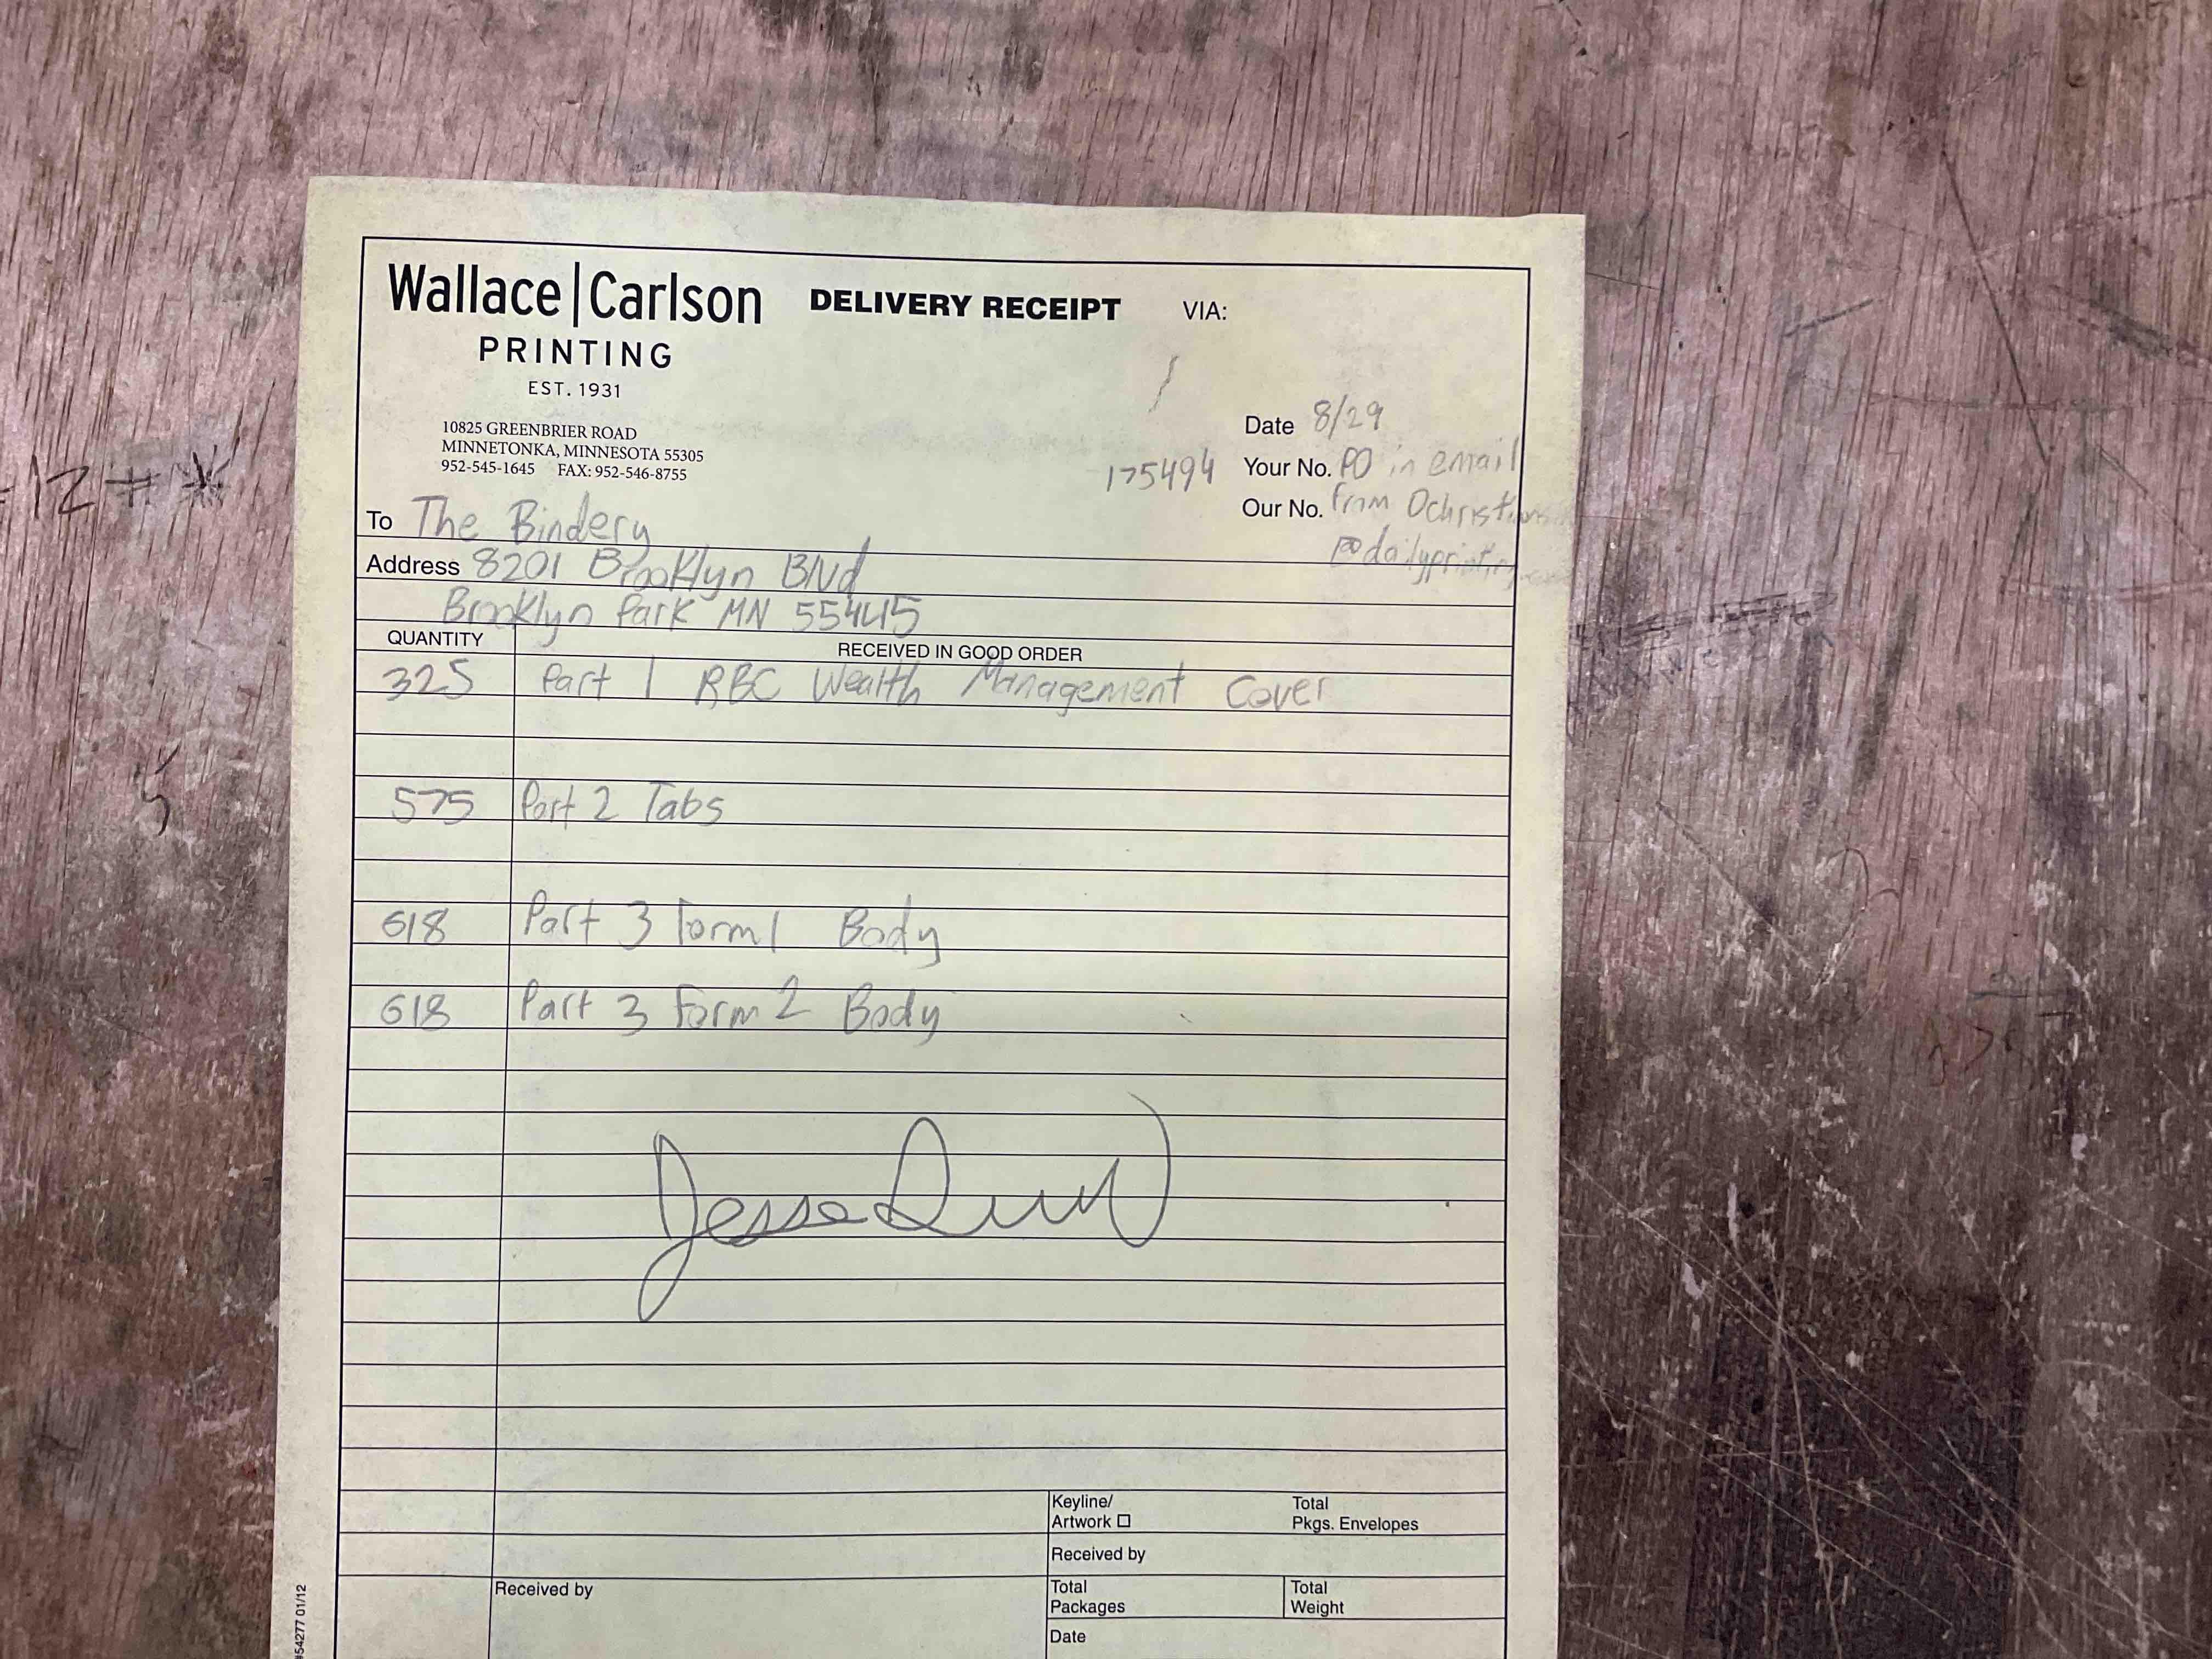 Wallace|Carlson DELIVERY RECEIPT VIA:
PRINTING
EST. 1931
10825 GREENBRIER ROAD
MINNETONKA, MINNESOTA 55305
952-545-1645 FAX: 952-546-8755
Date 8/29
175494 Your No. PO in email
Our No. from
@dailyprinting
To The Bindery
Address 8201 Brooklyn Blvd
Brooklyn Park MN 55445
QUANTITY RECEIVED IN GOOD ORDER
325 Part 1 RBC Wealth Management Cover
575 Part 2 Tabs
618 Part 3 Form 1 Body
618 Part 3 Form 2 Body
Jesse
Keyline/ Total
Artwork ☐ Pkgs. Envelopes
Received by
Received by Total Total
Packages Weight
Date
#54277 01/12
-12 # *
5